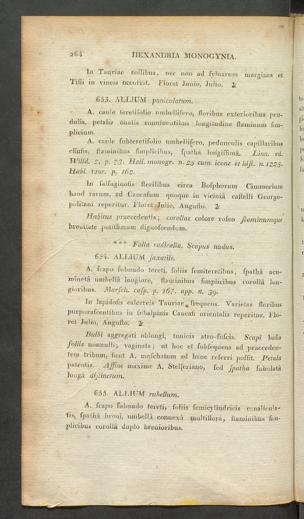 264 HEXANDRIA MONOGYNIA.
In Tauriae collibus, nec non ad segetum margines et
Tifli in vineis occurrit. Floret Junio, Julio. ♃
653. ALLIUM paniculatum.
A. caule teretifolio umbellifero, floribus exterioribus pen-
dulis, petalis ouatis conniuentibus longitudine staminum sim-
plicium.
A. caule subteretifolio umbellifero, pedunculis capillaribus
effusis, staminibus simplicibus, spatha longissima. Linn. ed.
Willd. 2. p. 73. Hall. monogr. n. 25 cum icone et hist. n. 1225.
Habl. taur. p. 162.
In salsuginosis sterilibus circa Bosphorum Cimmerium
haud rarum, ad Caucasum quoque in vicinia castelli George-
politani reperitur. Floret Julio, Augusto. ♃
Habitus praecedentis; corollae colore roseo staminumque
breuitate potissimum dignoscendum.
*** Folia radicalia. Scapus nudus.
654. ALLIUM saxatile.
A. scapo subnudo tereti, foliis semiteretibus, spatha acu-
minata umbella longiore, staminibus simplicibus corolla lon-
gioribus. Marsch. casp. p. 167. app. n. 39.
In lapidosis calcareis Tauriae frequens. Varietas floribus
purpurascentibus in subalpinis Caucasi orientalis reperitur. Flo-
ret Julio, Augusto. ♃
Bulbi aggregati oblongi, tunicis atro-fuscis. Scapi basi
foliis nonnullis, vaginatis; ut hoc et subsequens ad praeceden-
tem tribum, sunt A. moschatum ad hinc referri possit. Petala
patentia. Affine maxime A. Stelleriano, sed spatha subulata
longa distinctum.
655. ALLIUM rubellum.
A. scapo subnudo tereti, foliis semicylindricis canalicula-
tis, spatha breui, umbella connexa multiflora, staminibus sim-
plicibus corolla duplo breuioribus.